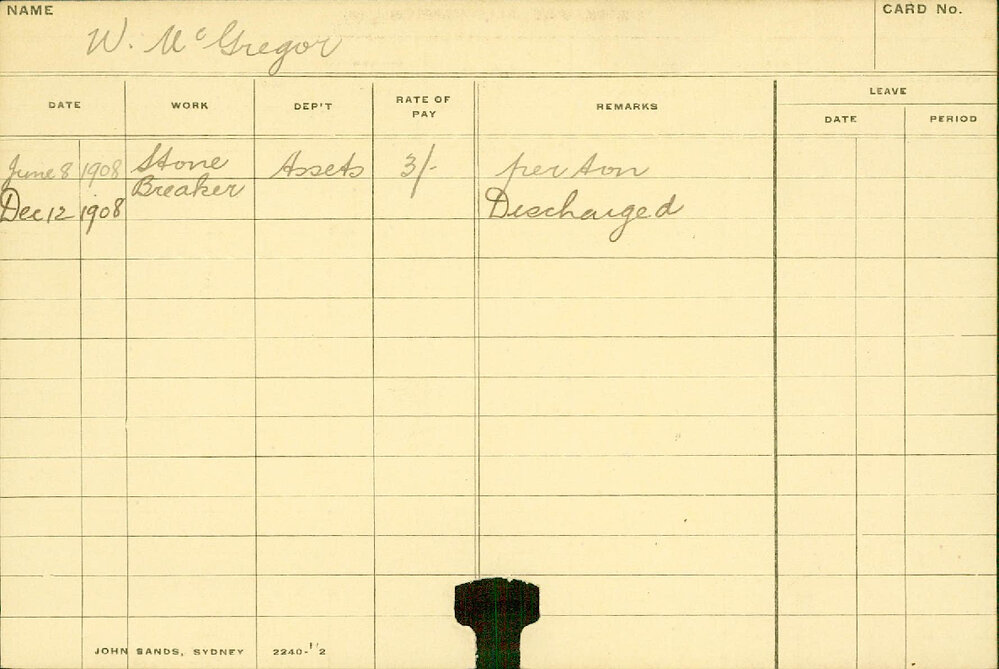 NAME
W. McGregor
CARD No.
DATE WORK DEP'T RATE OF PAY REMARKS LEAVE
DATE PERIOD
June 8 1908 Stone Breaker Assets 3/- per ton
Dec 12 1908 Discharged
JOHN SANDS, SYDNEY 2240-11/2